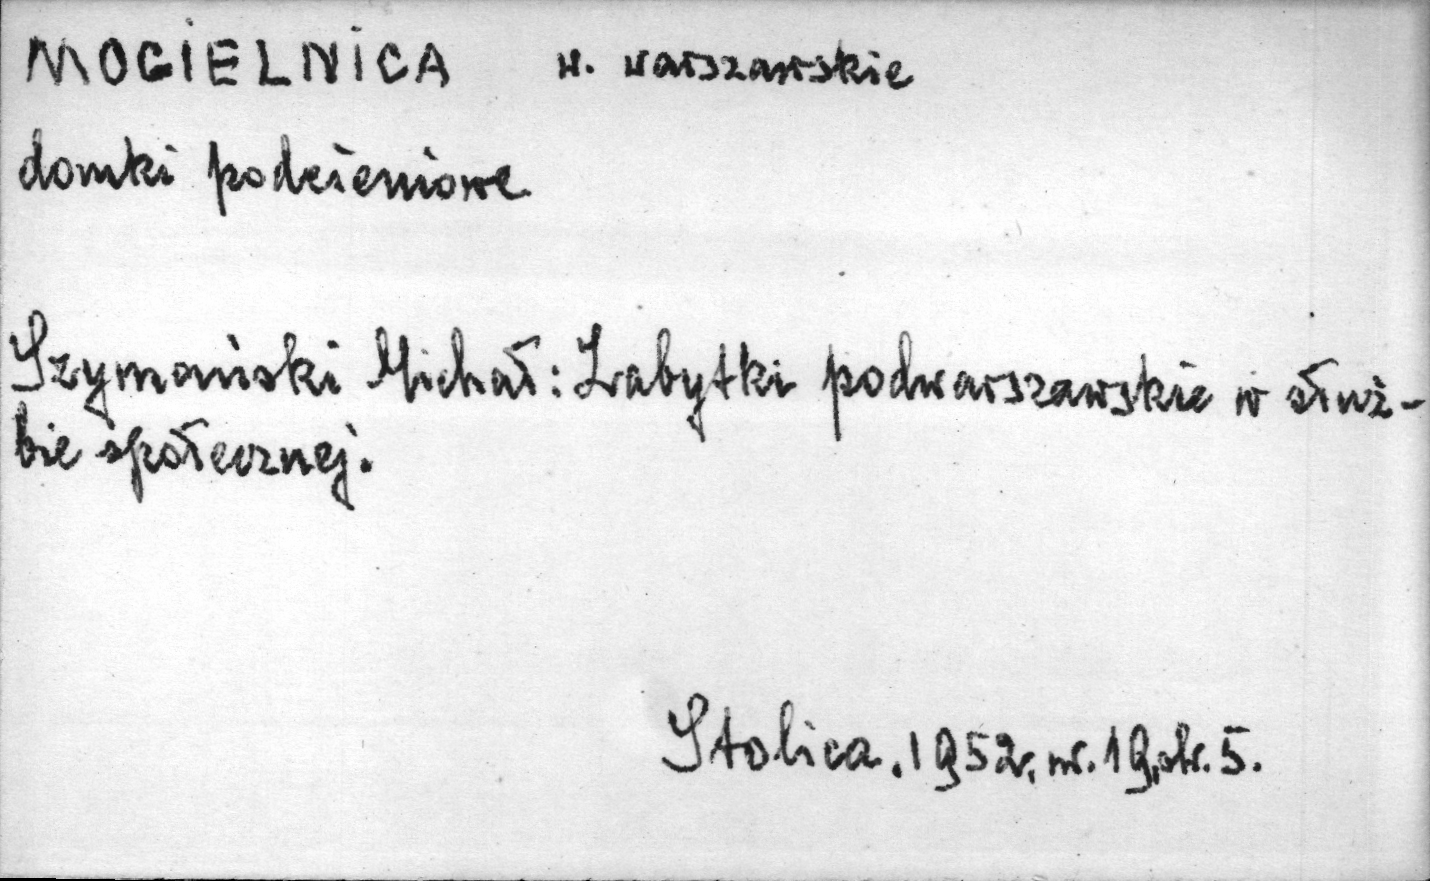 MOGIELNICA w. warszawskie
domki podcieniowe
Szymański Michał: Zabytki podwarszawskie w służ-
bie społecznej.
Stolica. 1952, nr. 19, str. 5.